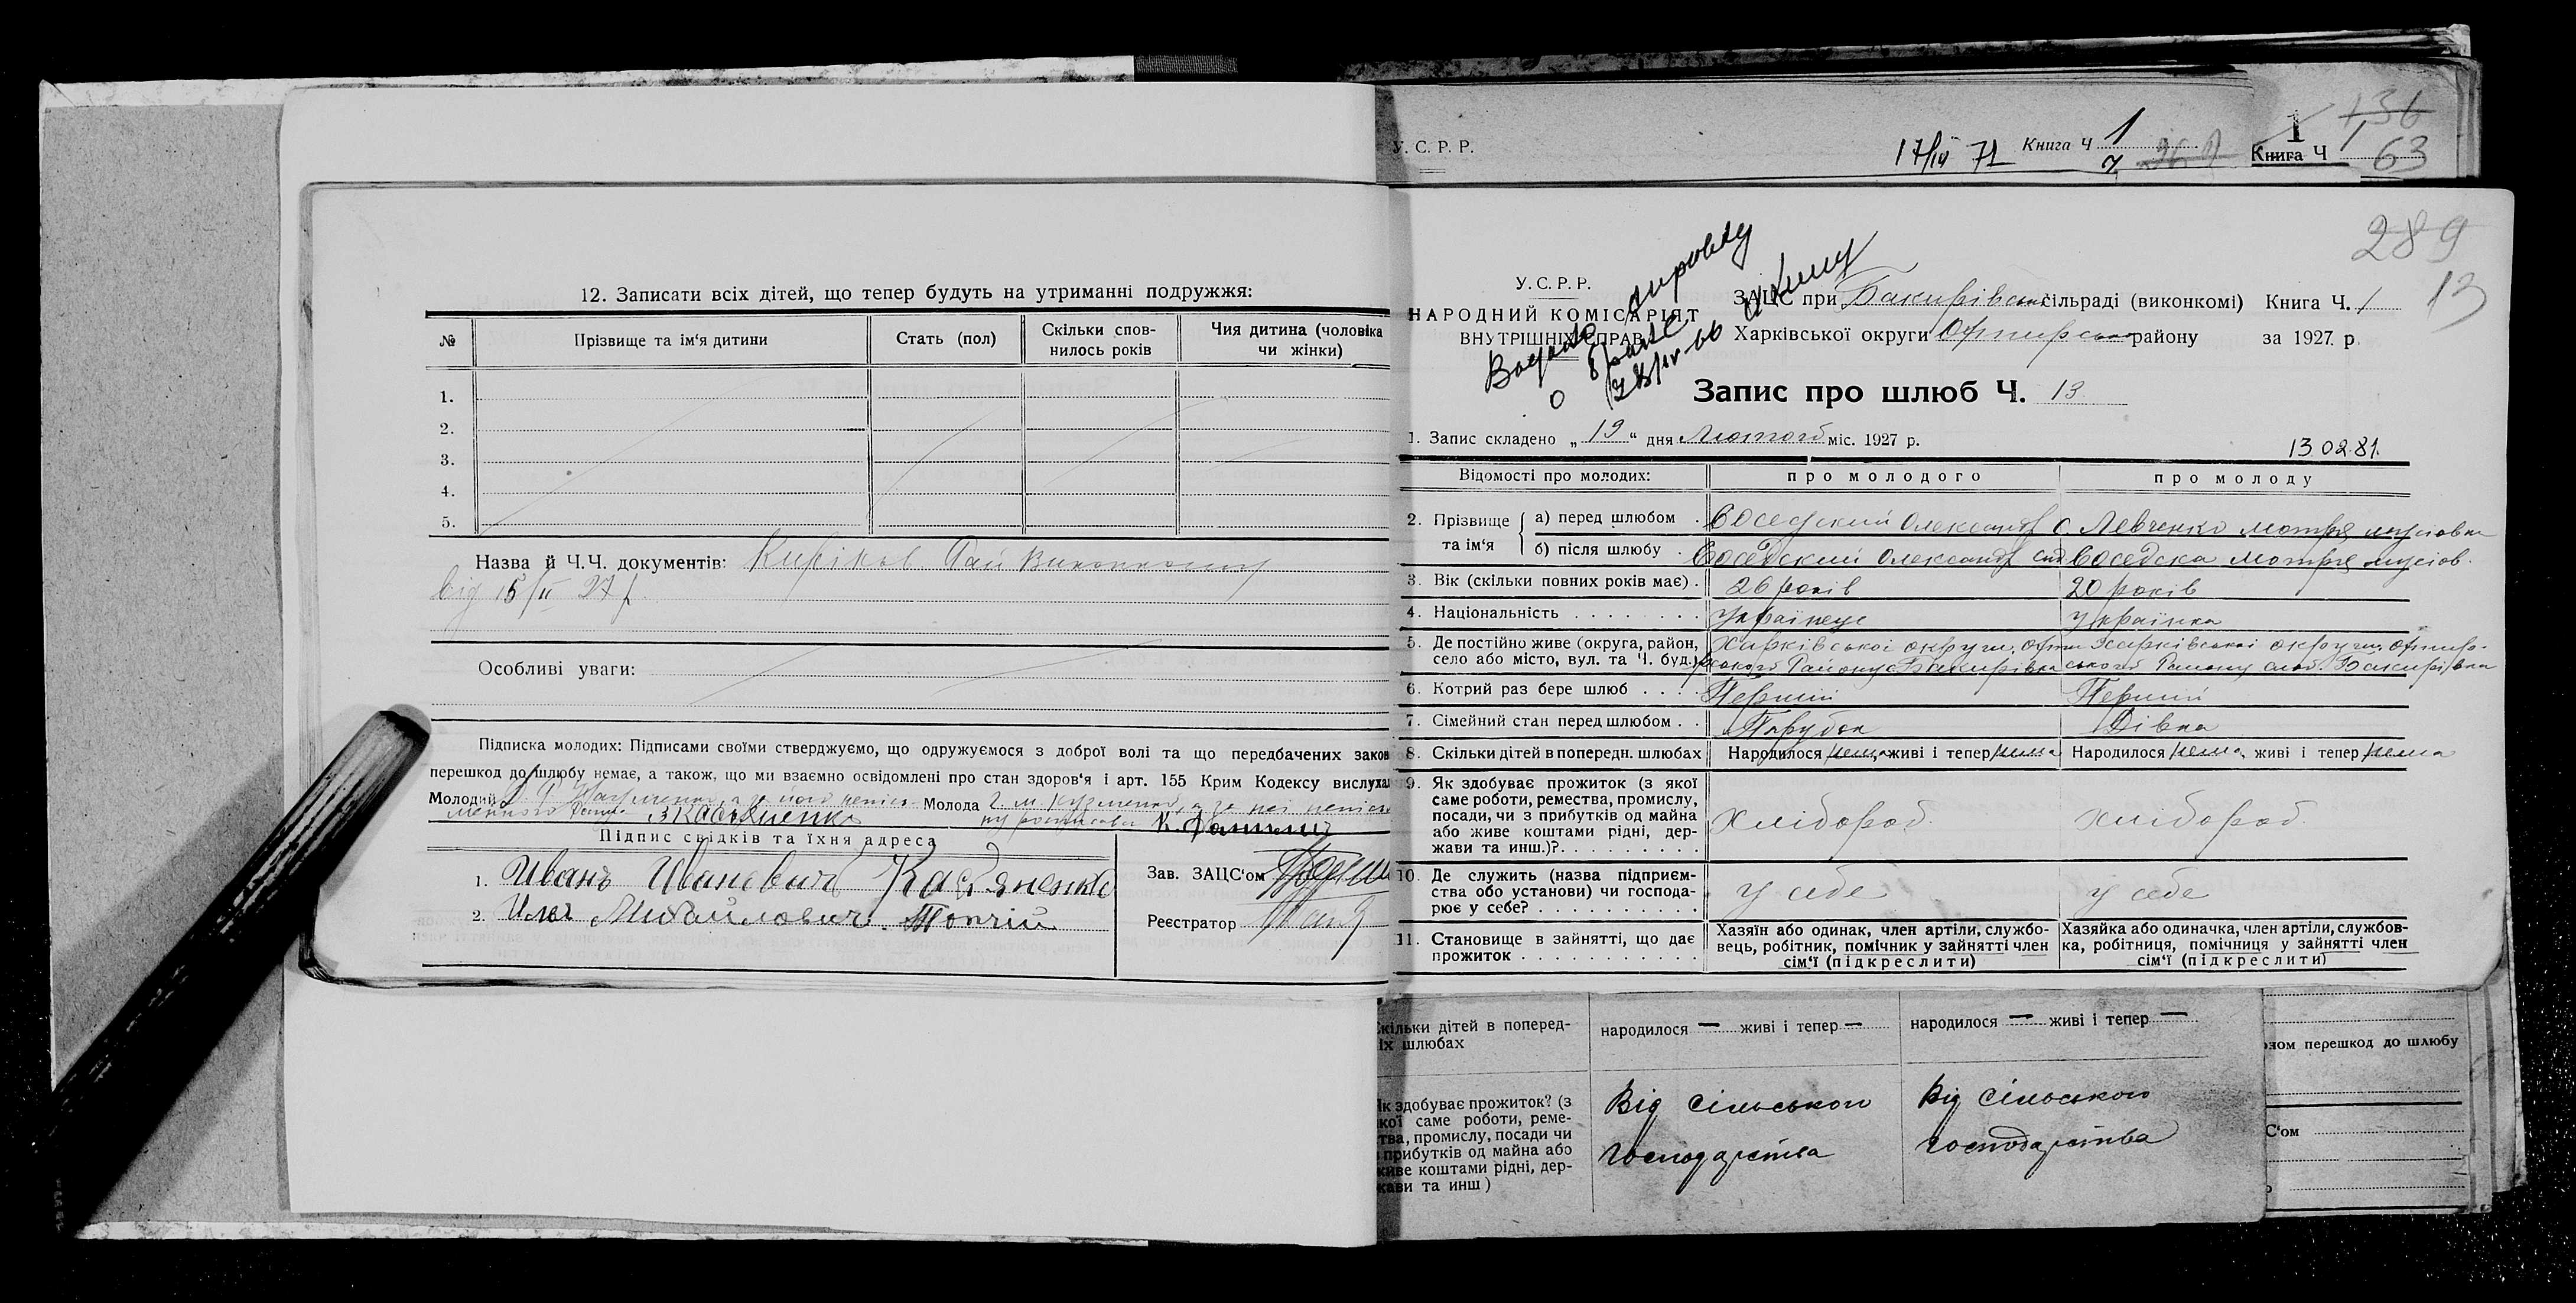 12. Записати всіх дітей, що тепер будуть на утриманні подружжя:
№ Прізвище та ім'я дитини Стать (пол) Скільки спов-нилось років Чия дитина (чоловіка чи жінки)
1.
2.
3.
4.
5.
Назва й Ч.Ч. документів:
від 15/II 27 р.
Особливі уваги:
Підписка молодих: Підписами своїми стверджуємо, що одружуємося з доброї волі та що передбачених закон
перешкод до шлюбу немає, а також, що ми взаємно освідомлені про стан здоров'я і арт. 155 Крим Кодексу вислуха
Молодий Молода
Підпис свідків та їхня адреса
1. Иванъ Ивановичъ Касьяненко
2. Илья Михайловичъ Топчій
Зав. ЗАЦС'ом
Реєстратор
У. С. Р. Р.
17/IV 71 Книга Ч 1
7
1 136
Книга Ч 1 63
289
13
У. С. Р. Р.
НАРОДНИЙ КОМІСАРІЯТ
ВНУТРІШНІХ СПРАВ
о браке
ЗАЦС при Бакирівській сільраді (виконкомі) Книга Ч. 1
Харківської округи Охтирського району за 1927. р.
Запис про шлюб Ч. 13
1. Запис складено „19“ дня Лютого міс. 1927 р.
13.02.81.
Відомості про молодих: про молодого про молоду
2. Прізвище та ім'я
а) перед шлюбом Олександр С. Левченко Мотря Мусіовна
б) після шлюбу Олександр Мотря Мусіов.
3. Вік (скільки повних років має) . 26 років 20 років
4. Національність Українець Українка
5. Де постійно живе (округа, район, село або місто, вул. та Ч. буд.) Харківської округи, Охтирського Району с. Бакирівка Харківської округи, Охтирського Району слоб. Бакирівка
6. Котрий раз бере шлюб Перший Перший
7. Сімейний стан перед шлюбом Парубок Дівка
8. Скільки дітей в попередн. шлюбах Народилося нема, живі і тепер нема Народилося нема, живі і тепер нема
9. Як здобуває прожиток (з якої саме роботи, ремества, промислу, посади, чи з прибутків од майна або живе коштами рідні, дер-жави та инш.)? Хлібороб. Хлібороб.
10. Де служить (назва підприєм-ства або установи) чи господа-рює у себе? у себе у себе
11. Становище в зайнятті, що дає прожиток Хазяїн або одинак, член артіли, службо-вець, робітник, помічник у зайнятті член сім'ї (підкреслити) Хазяйка або одиначка, член артіли, службов-ка, робітниця, помічниця у зайнятті член сім'ї (підкреслити)
кільки дітей в поперед-
їх шлюбах
народилося — живі і тепер — народилося — живі і тепер —
Як здобуває прожиток? (з
кої саме роботи, реме-
тва, промислу, посади чи
прибутків од майна або
живе коштами рідні, дер-
жави та инш)
Від сільського господарства Від сільського господарства
ном перешкод до шлюбу
С'ом